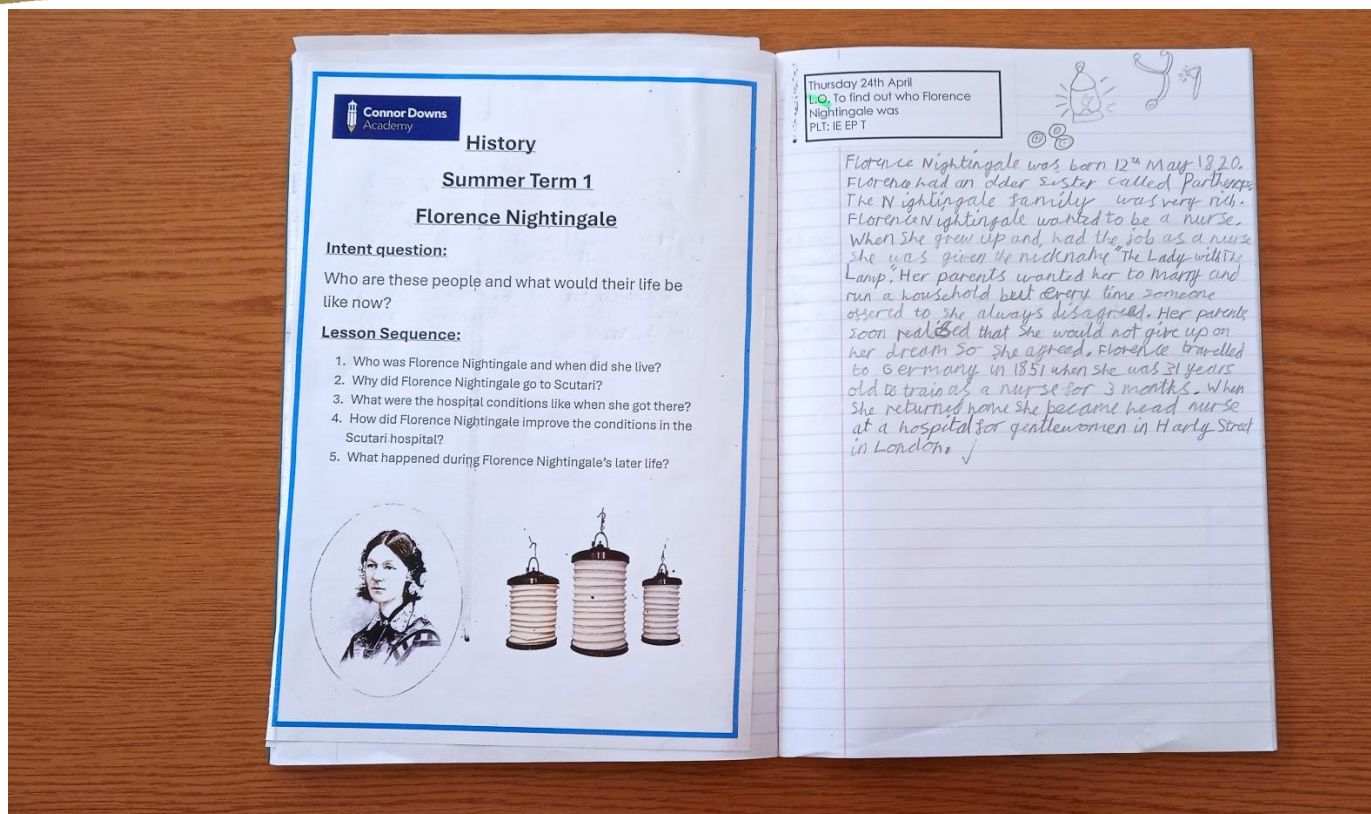 Connor Downs
Academy
History
Summer Term 1
Florence Nightingale
Intent question:
Who are these people and what would their life be
like now?
Lesson Sequence:
1. Who was Florence Nightingale and when did she live?
2. Why did Florence Nightingale go to Scutari?
3. What were the hospital conditions like when she got there?
4. How did Florence Nightingale improve the conditions in the
Scutari hospital?
5. What happened during Florence Nightingale's later life?
Thursday 24th April
L.O. To find out who Florence
Nightingale was
PLT: IE EP T
Florence Nightingale was born 12th May 1820.
Florence had an older sister called Parthenope.
The Nightingale family was very rich.
Florence Nightingale wanted to be a nurse.
When she grew up and had the job as a nurse
she was given the nickname "The Lady with The
Lamp". Her parents wanted her to marry and
run a household but every time someone
offered to she always disagreed. Her parents
soon realised that she would not give up on
her dream so she agreed. Florence travelled
to Germany in 1851 when she was 31 years
old to train as a nurse for 3 months. When
she returned home she became head nurse
at a hospital for gentlewomen in Harly Street
in London.